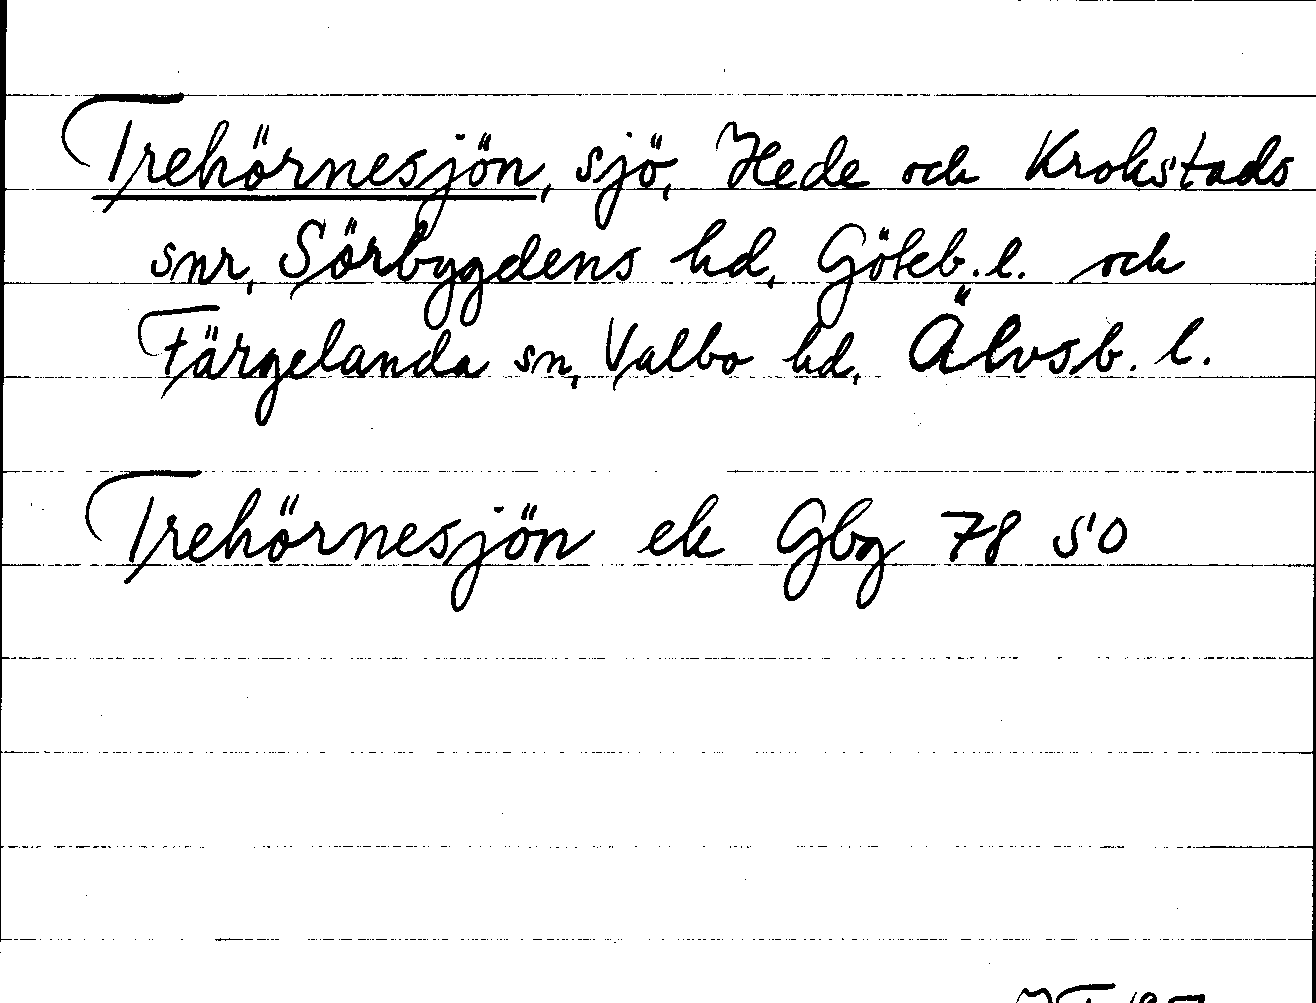 Trehörnesjön, sjö, Hede och Krokstads
snr, Sörbygdens hd, Göteb. l. och
Färgelanda sn, Valbo hd, Älvsb. l.
Trehörnesjön ek Gbg 78 50